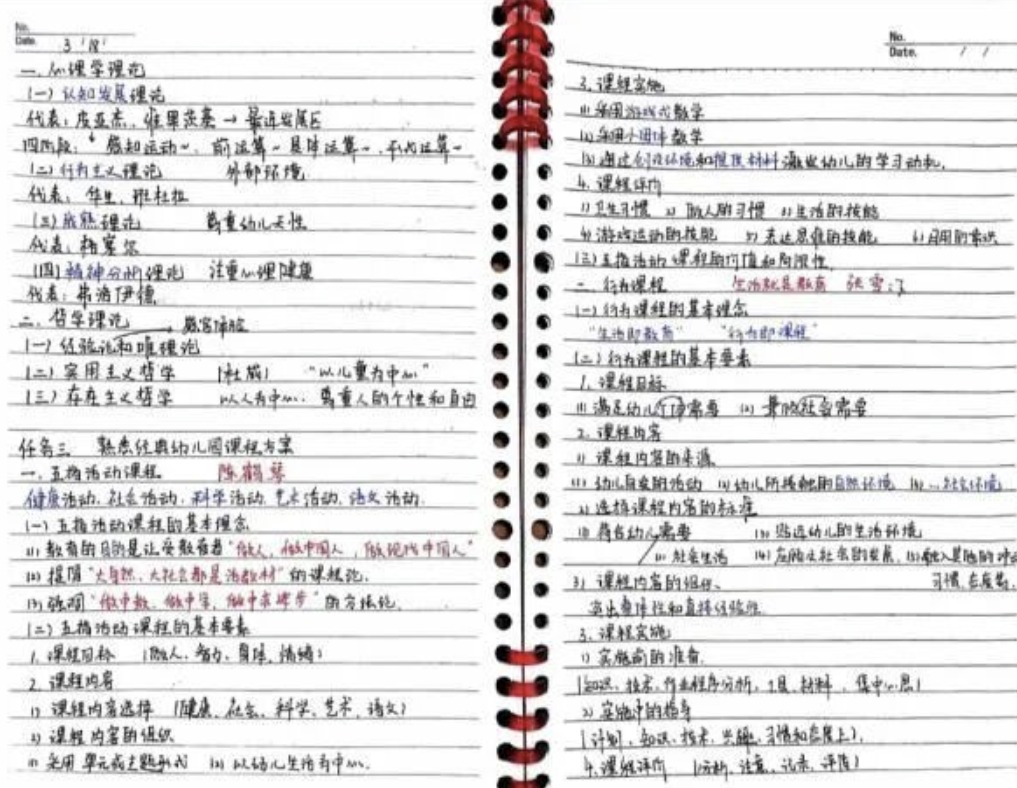 No.
Date. 3 / 18 /
一. 心理学理论
(一) 认知发展理论
代表: 皮亚杰、维果茨基 → 最近发展区
四阶段: 感知运动~ 前运算~ 具体运算~ 形式运算~
(二) 行为主义理论 外部环境
代表: 华生, 班杜拉
(三) 成熟理论 尊重幼儿天性
代表: 格塞尔
(四) 精神分析理论 注重心理健康
代表: 弗洛伊德
二. 哲学理论 感官体验
(一) 经验论和唯理论
(二) 实用主义哲学 (杜威) "以儿童为中心"
(三) 存在主义哲学 以人为中心. 尊重人的个性和自由
任务三 熟悉经典幼儿园课程方案
一. 五指活动课程 陈鹤琴
健康活动. 社会活动. 科学活动. 艺术活动. 语文活动.
(一) 五指活动课程的基本理念
(1) 教育的目的是让受教育者"做人, 做中国人, 做现代中国人"
(2) 提倡"大自然、大社会都是活教材"的课程论.
(3) 强调"做中教, 做中学, 做中求进步"的方法论.
(二) 五指活动课程的基本要素
1. 课程目标 (做人、智力、身体、情绪)
2. 课程内容
1) 课程内容选择 (健康、社会、科学、艺术、语文)
2) 课程内容的组织
(1) 采用单元或主题形式 (2) 以幼儿生活为中心.
No.
Date. / /
3. 课程实施
(1) 采用游戏式教学
(2) 采用小团体教学
(3) 通过创设环境和提供材料激发幼儿的学习动机.
4. 课程评价
1) 卫生习惯 2) 做人的习惯 3) 生活的技能
4) 游戏运动的技能 5) 表达思维的技能 6) 日用的常识
(三) 五指活动课程的价值和局限性
二. 行为课程 生活就是教育 张雪门
(一) 行为课程的基本理念
"生活即教育" "行为即课程"
(二) 行为课程的基本要素
1. 课程目标
(1) 满足幼儿个体需要 (2) 兼顾社会需要
2. 课程内容
1) 课程内容的来源
(1) 幼儿自发的活动 (2) 幼儿所接触的自然环境 (3) ...社会环境
2) 选择课程内容的标准
(1) 符合幼儿需要 (3) 贴近幼儿的生活环境
(2) 社会生活 (4) 应顾及社会的发展.
习惯, 态度等.
3) 课程内容的组织.
突出整体性和直接经验性
3. 课程实施
1) 实施前的准备.
(知识、技术、作业程序分析, 工具、材料, 集中心思)
2) 实施中的指导
(计划、知识、技术、兴趣、习惯和态度上).
4. 课程评价 (分析、注意、记录、评估)